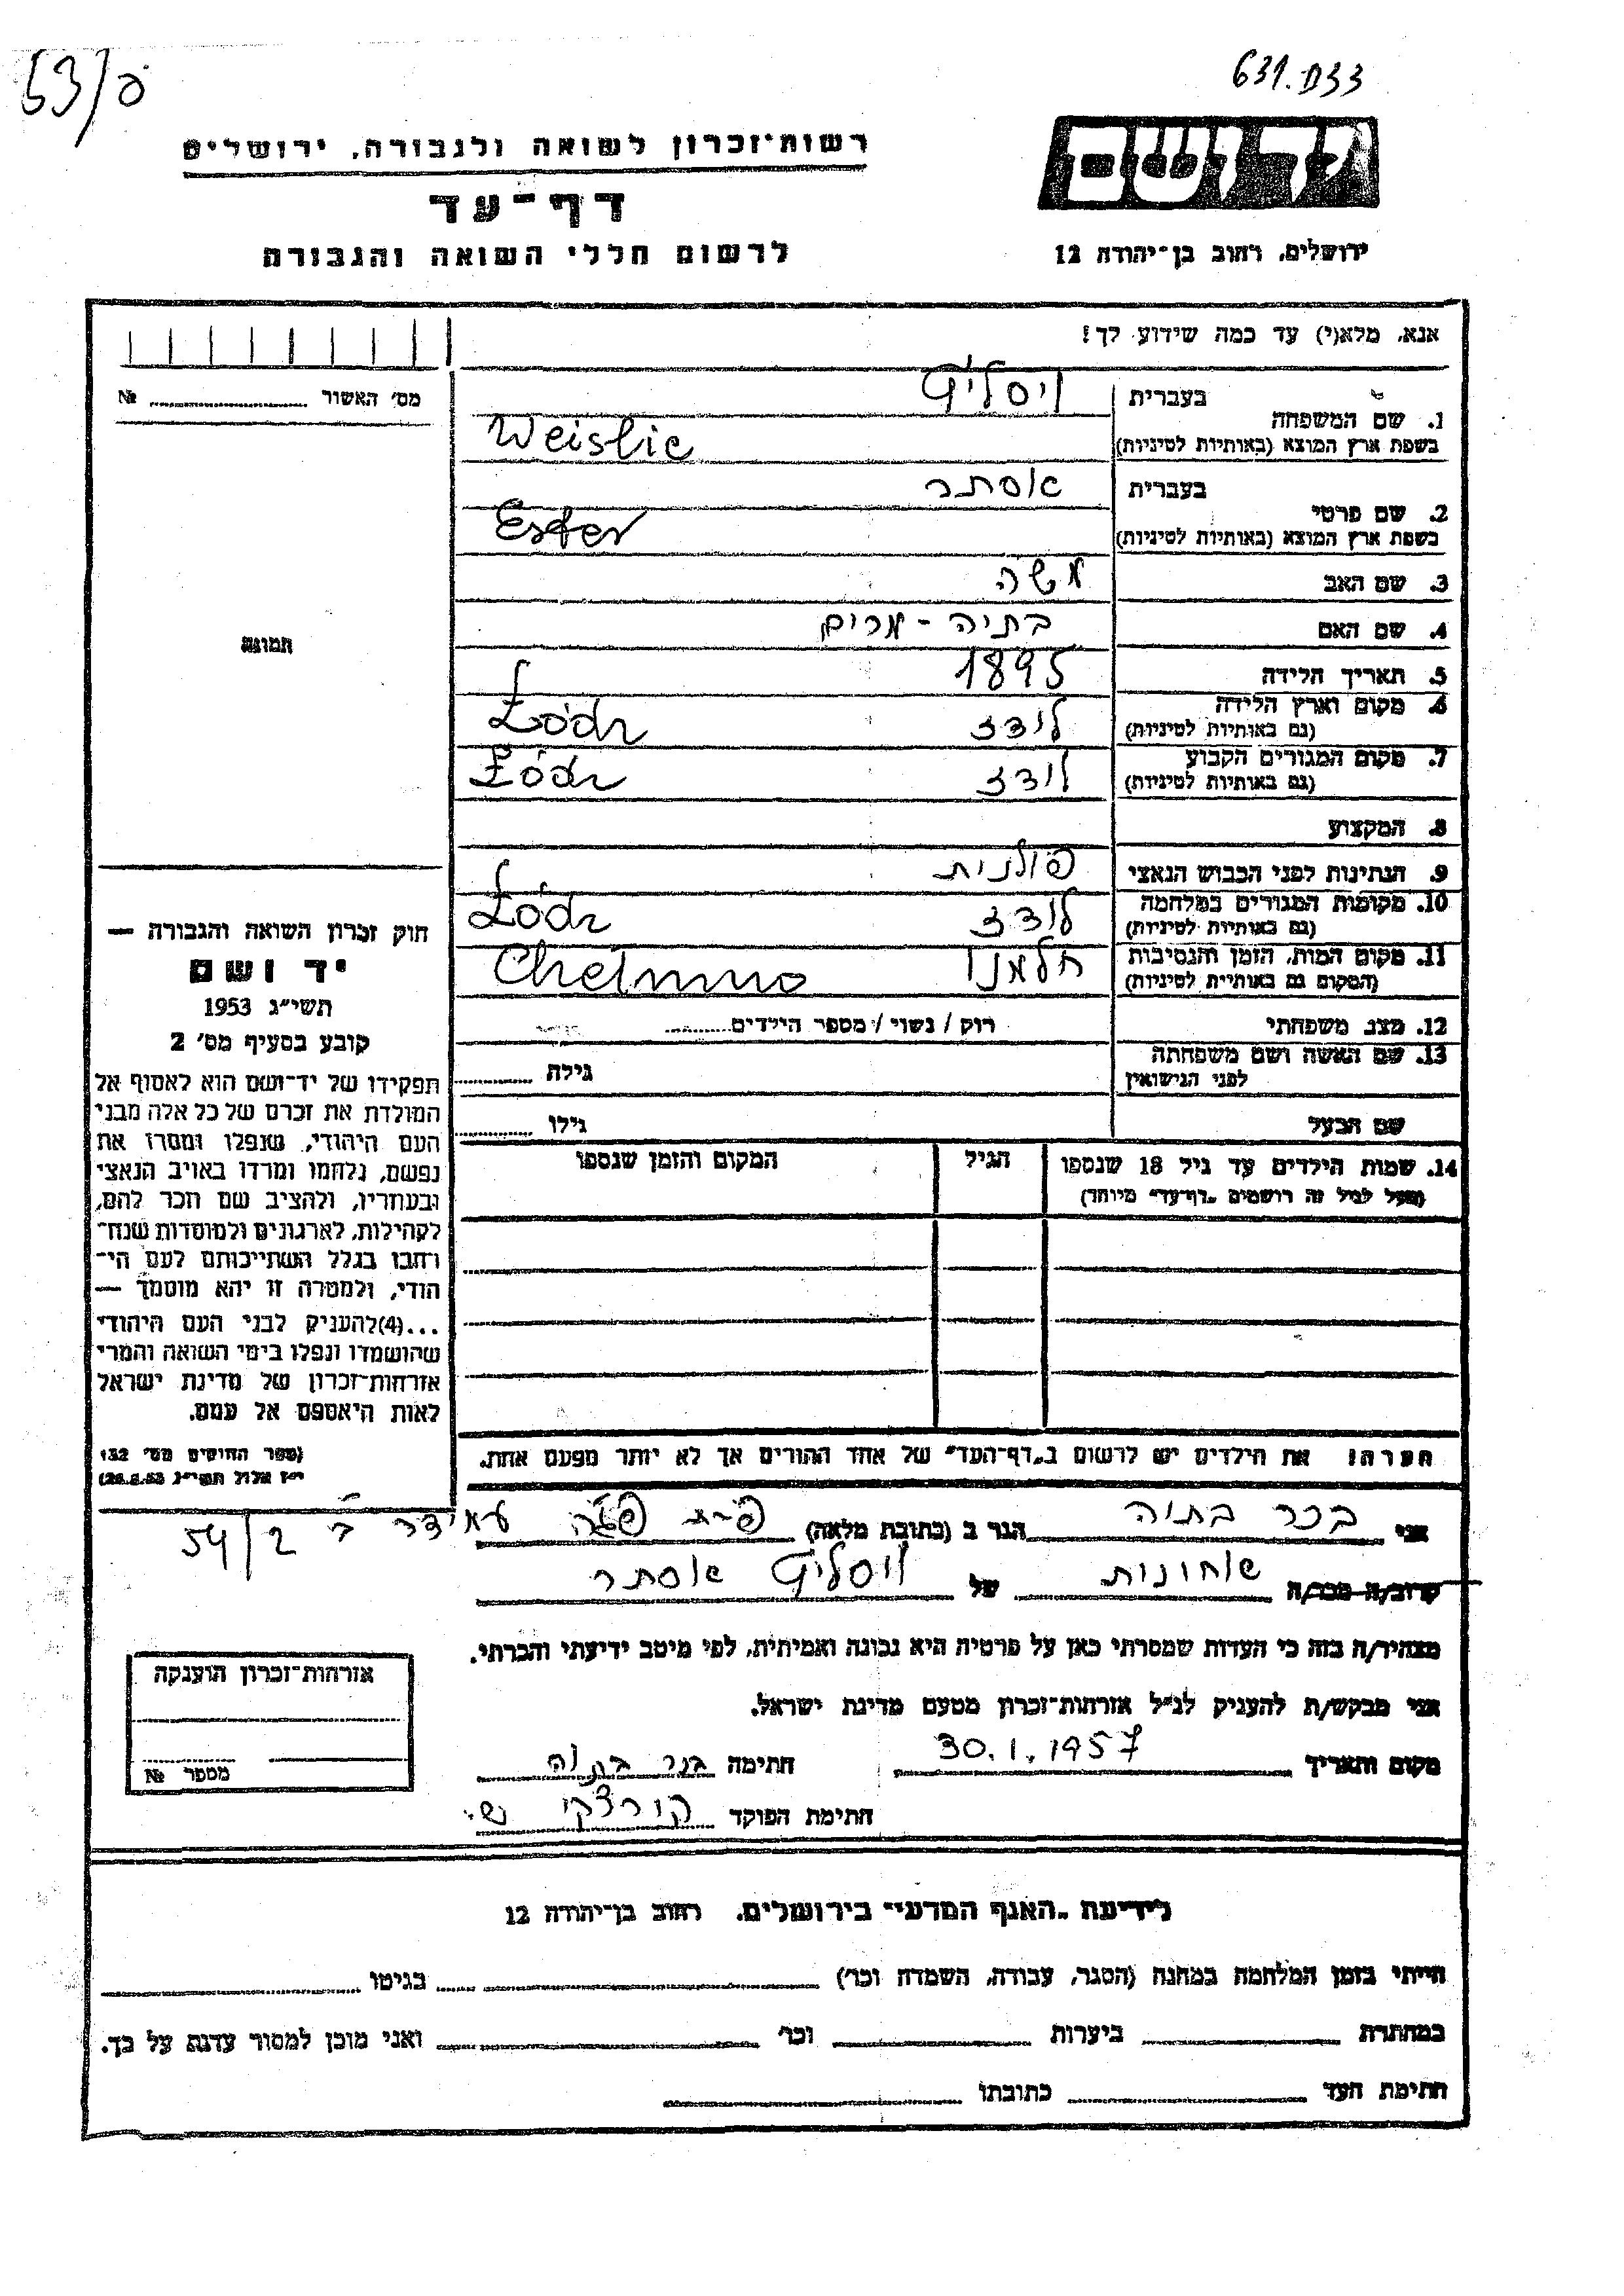 53/פ
631.D33
יד ושם
רשות־זכרון לשואה ולגבורה, ירושלים
דף־עד
לרשום חללי השואה והגבורה
ירושלים, רחוב בן־יהודה 12
אנא, מלא(י) עד כמה שידוע לך!
מס׳ האשור № 
1. שם המשפחה
בעברית ויסליץ
בשפת ארץ המוצא (באותיות לטיניות) Weislic
2. שם פרטי
בעברית אסתר
בשפת ארץ המוצא (באותיות לטיניות) Ester
3. שם האב משה
4. שם האם בתיה - מרים
5. תאריך הלידה 1895
6. מקום וארץ הלידה לודז Łódz
(גם באותיות לטיניות)
7. מקום המגורים הקבוע לודז Łódz
(גם באותיות לטיניות)
8. המקצוע
9. הנתינות לפני הכבוש הנאצי פולנית
10. מקומות המגורים במלחמה לודז Łódz
(גם באותיות לטיניות)
11. מקום המות, הזמן והנסיבות חלמנו Chełmno
(המקום גם באותיות לטיניות)
12. מצב משפחתי רוק / נשוי / מספר הילדים
13. שם האשה ושם משפחתה
לפני הנישואין גילה
שם הבעל גילו
14. שמות הילדים עד גיל 18 שנספו הגיל המקום והזמן שנספו
(מעל לגיל זה רושמים „דף־עד״ מיוחד)
תמונה
חוק זכרון השואה והגבורה —
יד ושם
תשי״ג 1953
קובע בסעיף מס׳ 2
תפקידו של יד־ושם הוא לאסוף אל
המולדת את זכרם של כל אלה מבני
העם היהודי, שנפלו ומסרו את
נפשם, נלחמו ומרדו באויב הנאצי
ובעוזריו, ולהציב שם וזכר להם,
לקהילות, לארגונים ולמוסדות שנח־
רחבו בגלל השתייכותם לעם הי־
הודי, ולמטרה זו יהא מוסמך —
...(4)להעניק לבני העם היהודי
שהושמדו ונפלו בימי השואה והמרי
אזרחות־זכרון של מדינת ישראל
לאות היאספם אל עמם.
(ספר החוקים מס׳ 132
י״ז אלול תשי״ג 28.8.53)
הערה! את הילדים יש לרשום ב„דף־העד״ של אחד ההורים אך לא יותר מפעם אחת.
אני בכר בתיה הגר ב (כתובת מלאה) פ״ת עמידר ב 54/2
קרוב/ה מכר/ה שכונות של ויסליץ אסתר
מצהיר/ה בזה כי העדות שמסרתי כאן על פרטיה היא נכונה ואמיתית, לפי מיטב ידיעתי והכרתי.
אני מבקש/ת להעניק לנ״ל אזרחות־זכרון מטעם מדינת ישראל.
מקום ותאריך 30.1.1957 חתימה בכר בתיה
חתימת הפוקד קורצקי
אזרחות־זכרון הוענקה
מספר №
לידיעת „האגף המדעי״ בירושלים, רחוב בן־יהודה 12
הייתי בזמן המלחמה במחנה (הסגר, עבודה, השמדה וכו׳) בגיטו
במחתרת ביערות וכו׳ ואני מוכן למסור עדות על כך.
חתימת העד כתובתו